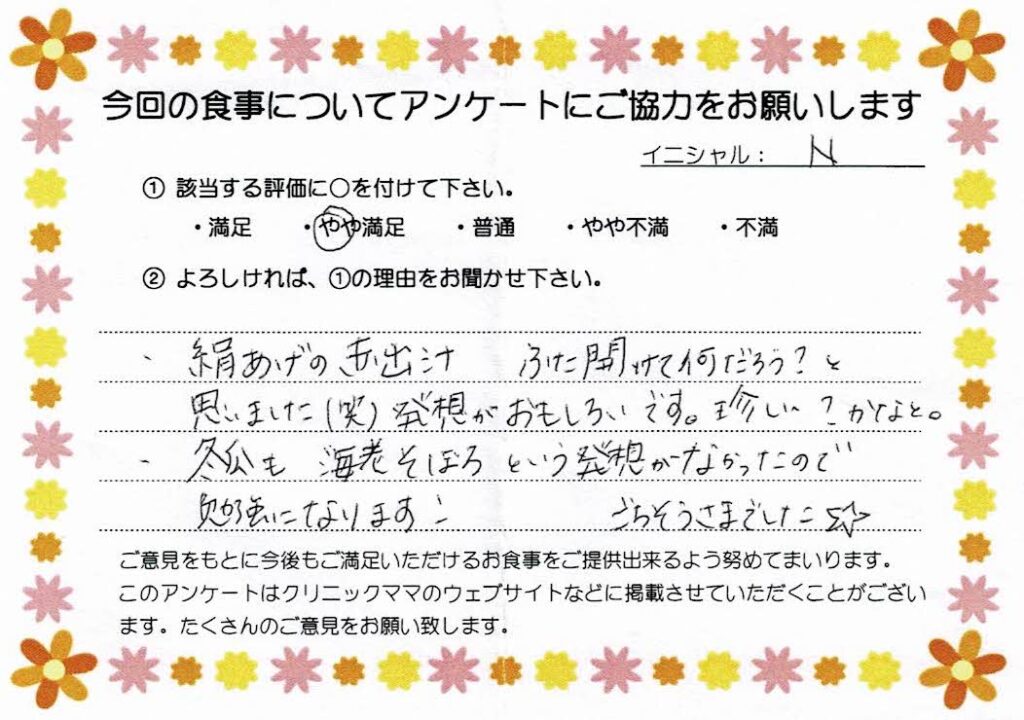 今回の食事についてアンケートにご協力をお願いします
イニシャル： N
① 該当する評価に○を付けて下さい。
・満足 ・やや満足 ・普通 ・やや不満 ・不満
② よろしければ、①の理由をお聞かせ下さい。
・ 絹あげの赤出汁 ふた開けて何だろう？と
思いました(笑) 発想がおもしろいです。珍しい？かなと。
・ 冬瓜も 海老そぼろ という発想がなかったので
勉強になります! ごちそうさまでした☆
ご意見をもとに今後もご満足いただけるお食事をご提供出来るよう努めてまいります。
このアンケートはクリニックママのウェブサイトなどに掲載させていただくことがござい
ます。たくさんのご意見をお願い致します。